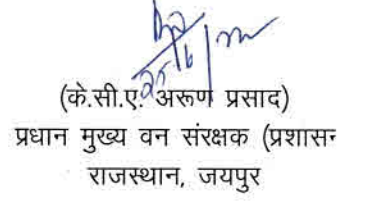 (के.सी.ए. अरूण प्रसाद)
प्रधान मुख्य वन संरक्षक (प्रशासन
राजस्थान, जयपुर